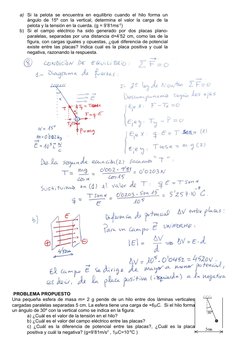 a) Si la pelota se encuentra en equilibrio cuando el hilo forma un
ángulo de 15º con la vertical, determina el valor de la carga de la
pelota y la tensión en la cuerda. (g = 9'81ms⁻²)
b) Si el campo eléctrico ha sido generado por dos placas plano-
paralelas, separadas por una distancia d=4'52 cm, como las de la
figura, con cargas iguales y opuestas, ¿qué diferencia de potencial
existe entre las placas? Indica cuál es la placa positiva y cuál la
negativa, razonando la respuesta.
CONDICIÓN DE EQUILIBRIO: ΣF=0
1- Diagrama de fuerzas
2- 2º ley de Newton ΣF=0
Descomponemos según los ejes
α = 15º
P=mg
De la segunda ecuación (2) sacamos "T".
Sustituimos en (1) el valor de T
b)
Diferencia de potencial ΔV entre placas:
Para un campo E UNIFORME:
|E| = ΔV/d ⇒ ΔV = E·d
El campo E se dirige de mayor a menor potencial,
es decir, de la placa positiva (izquierda) a la negativa
PROBLEMA PROPUESTO
Una pequeña esfera de masa m= 2 g pende de un hilo entre dos láminas verticales
cargadas paralelas separadas 5 cm. La esfera tiene una carga de +6μC. Si el hilo forma
un ángulo de 30º con la vertical como se indica en la figura:
a) ¿Cuál es el valor de la tensión en el hilo?
b) ¿Cuál es el valor del campo eléctrico entre las placas?
c) ¿Cuál es la diferencia de potencial entre las placas?, ¿Cuál es la placa
positiva y cuál la negativa? (g=9'81ms⁻², 1μC=10⁻⁶C )